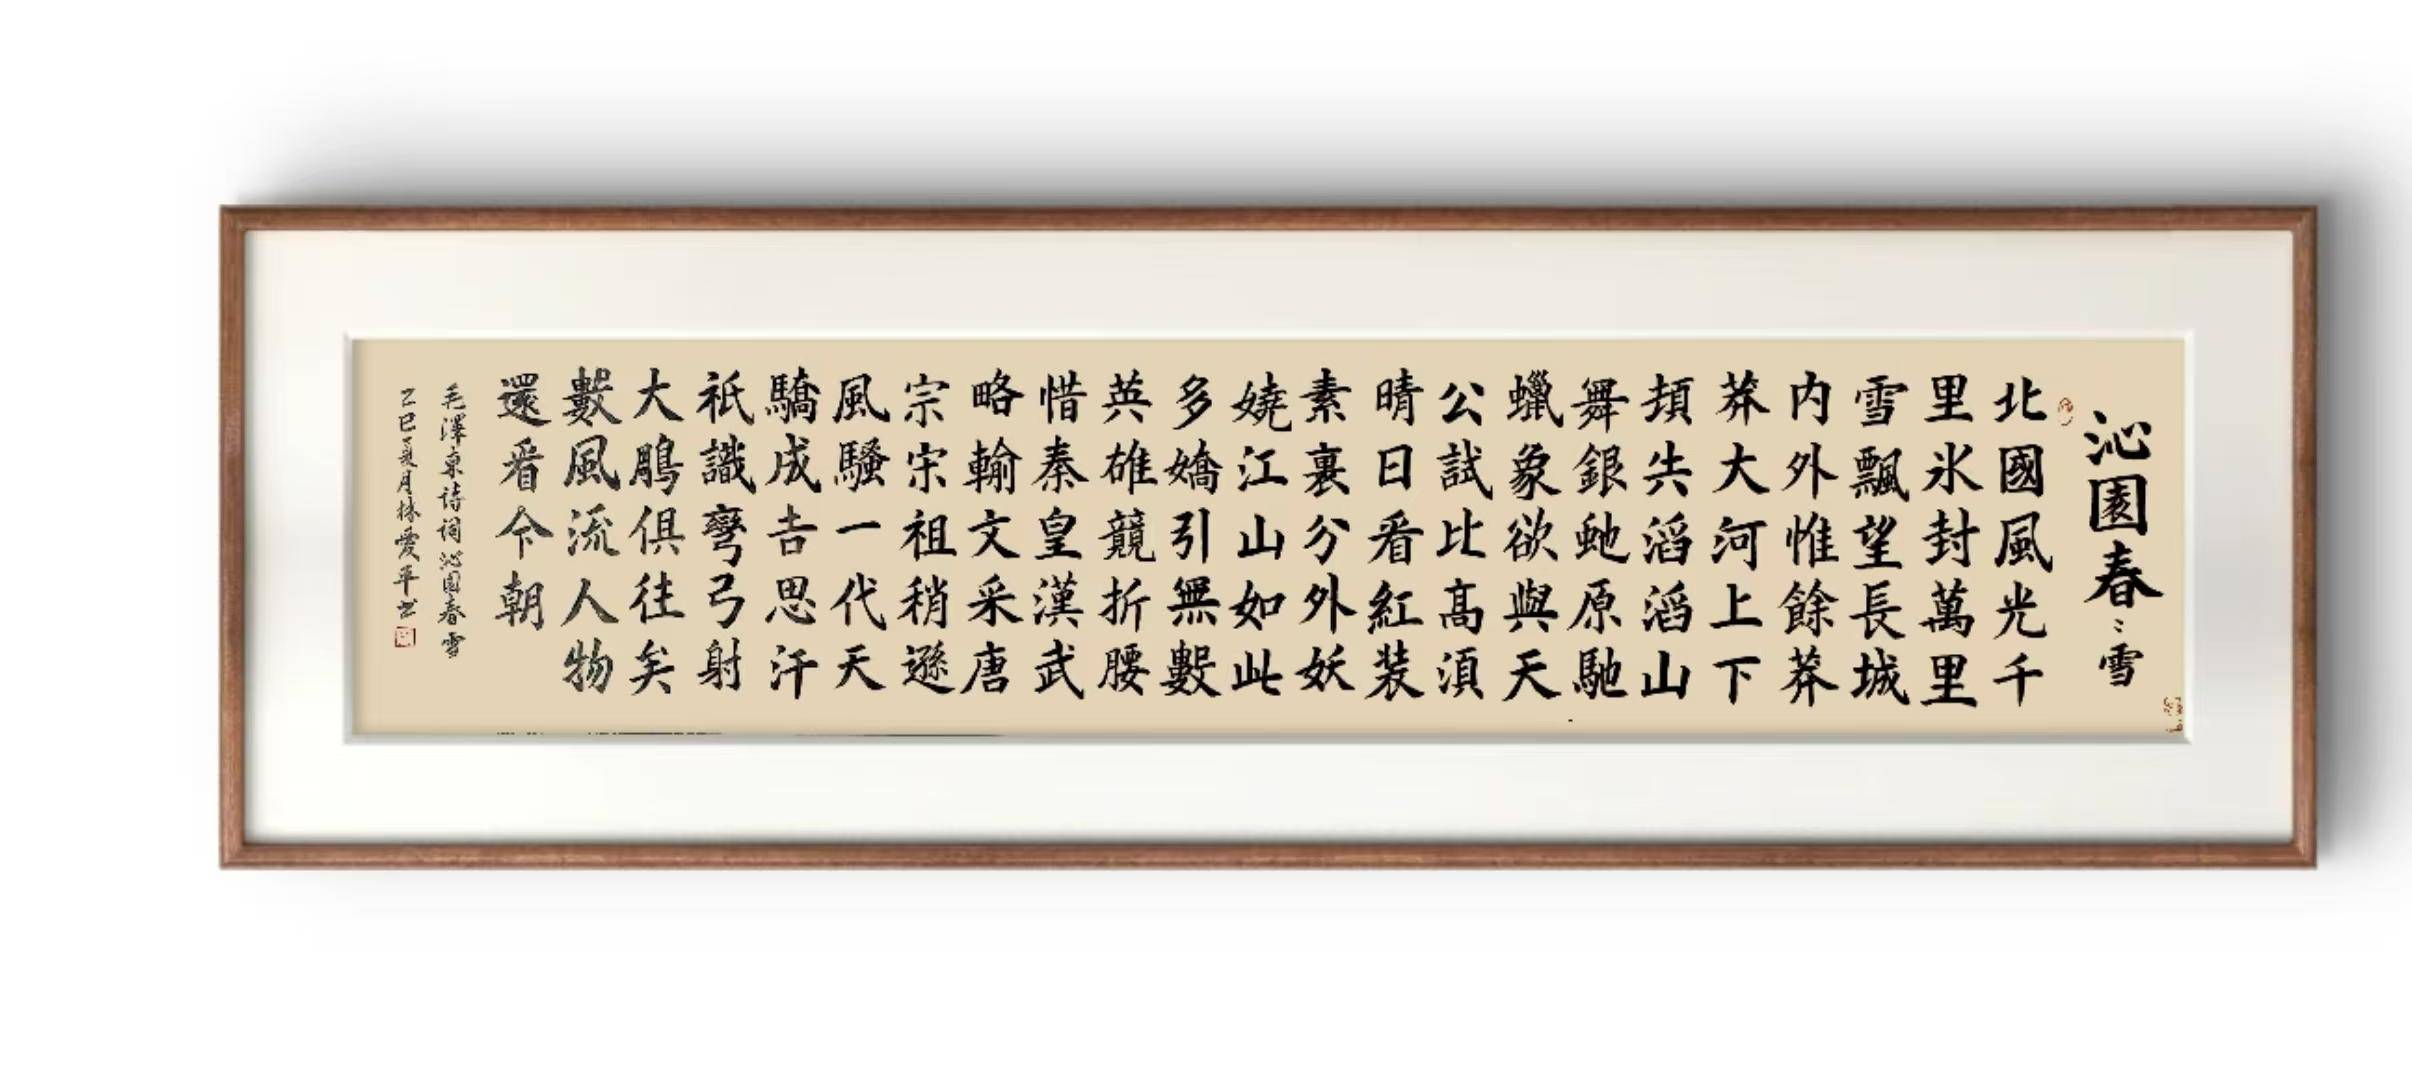 沁園春：雪
北國風光千
里氷封萬里
雪飄望長城
内外惟餘莽
莽大河上下
頓失滔滔山
舞銀虵原馳
蠟象欲與天
公試比高湏
晴日看紅装
素裏分外妖
嬈江山如此
多嬌引無數
英雄競折腰
惜秦皇漢武
略輸文采唐
宗宋祖稍遜
風騷一代天
驕成吉思汗
祇識彎弓射
大鵰俱往矣
數風流人物
還看今朝
毛澤東诗詞沁園春雪
乙巳夏月林愛平书